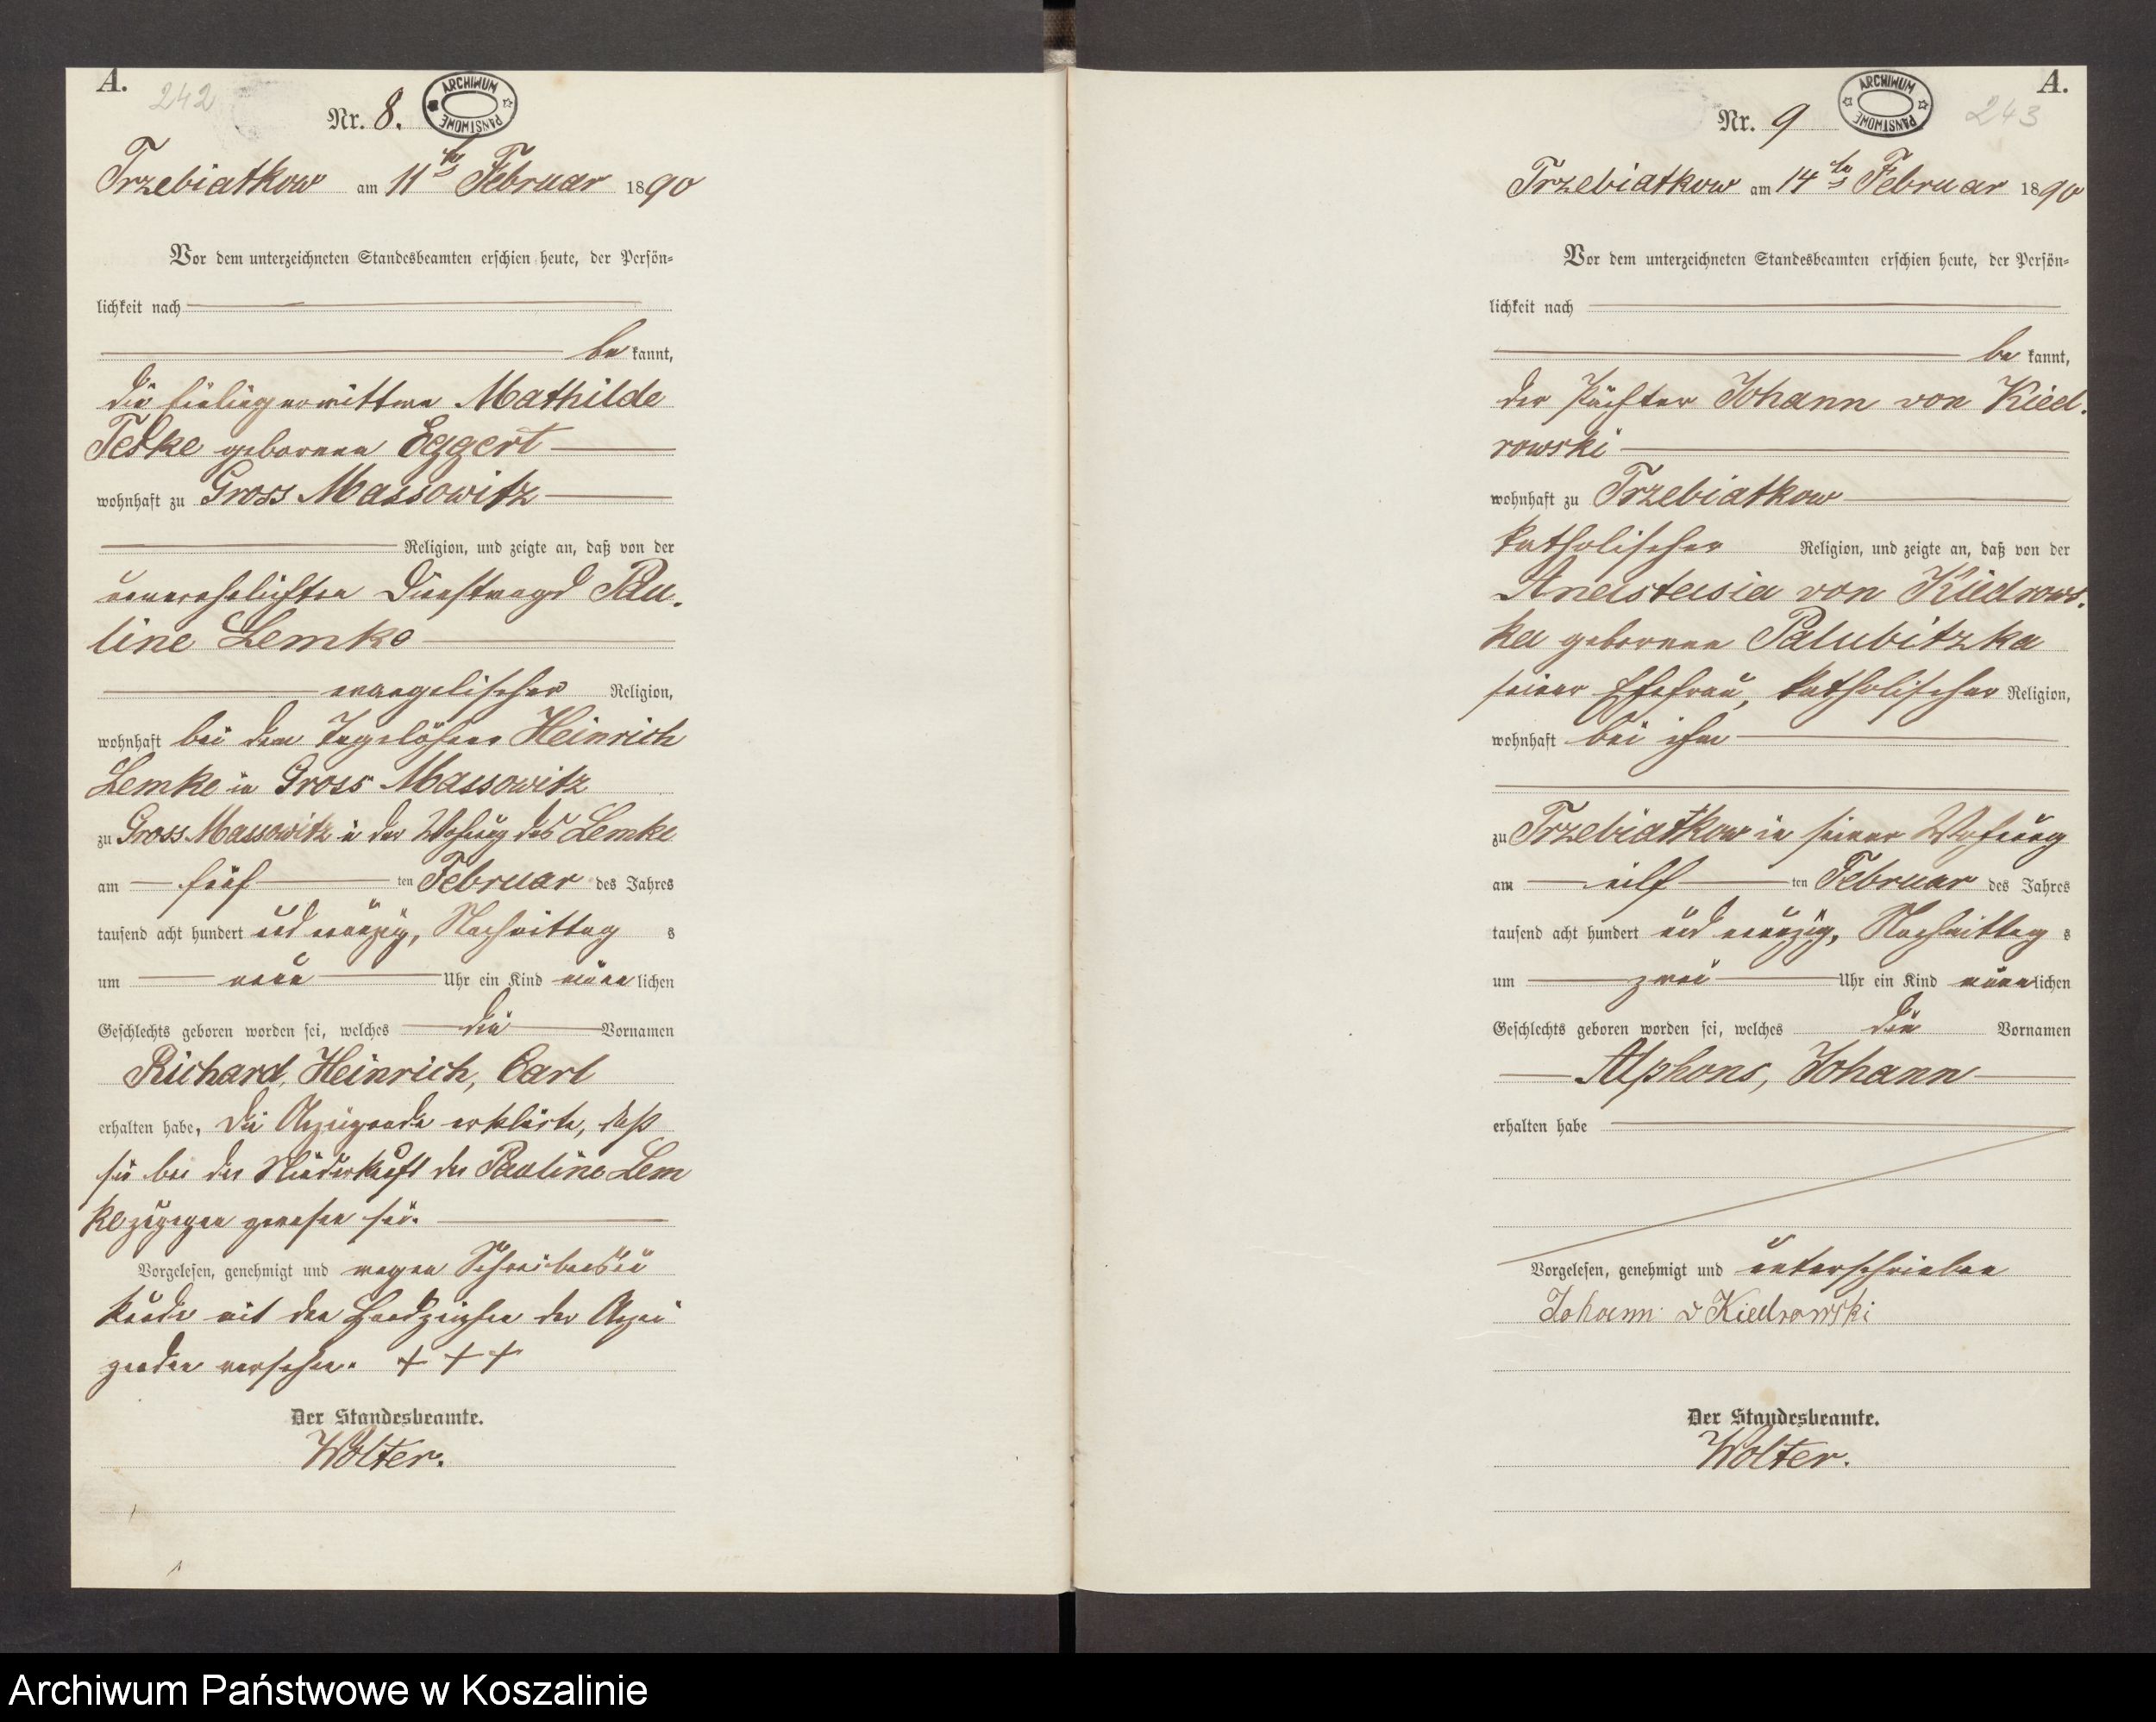 A.
242
Nr. 8.
ARCHIWUM PAŃSTWOWE
Trzebiatkow am 11ten Februar 1890
Vor dem unterzeichneten Standesbeamten erschien heute, der Persön-
lichkeit nach
be kannt,
die Einliegerwittwe Mathilde
Teske geborene Eggert
wohnhaft zu Gross Massowitz
Religion, und zeigte an, daß von der
unverehelichten Dienstmagd Pau-
line Lemke
evangelischer Religion,
wohnhaft bei dem Tagelöhner Heinrich
Lemke in Gross Massowitz
zu Gross Massowitz in der Wohnung des Lemke
am fünf ten Februar des Jahres
tausend acht hundert und neunzig, Nachmittag s
um neun Uhr ein Kind männ lichen
Geschlechts geboren worden sei, welches die Vornamen
Richard, Heinrich, Carl
erhalten habe, die Anzeigende erklärte, daß
sie bei der Niederkunft der Pauline Lem
ke zugegen gewesen sei.
Vorgelesen, genehmigt und wegen Schreibensun
kunde mit den Handzeichen der Anzei
genden versehen. + + +
Der Standesbeamte.
Wolter.
A.
243
Nr. 9
ARCHIWUM PAŃSTWOWE
Trzebiatkow am 14ten Februar 1890
Vor dem unterzeichneten Standesbeamten erschien heute, der Persön-
lichkeit nach
be kannt,
der Pächter Johann von Kied-
rowski
wohnhaft zu Trzebiatkow
katholischer Religion, und zeigte an, daß von der
Anastasia von Kiedrows-
ka geborene Palubitzka
seiner Ehefrau, katholischer Religion,
wohnhaft bei ihm
zu Trzebiatkow in seiner Wohnung
am eilf ten Februar des Jahres
tausend acht hundert und neunzig, Nachmittag s
um zwei Uhr ein Kind männ lichen
Geschlechts geboren worden sei, welches die Vornamen
Alphons, Johann
erhalten habe
Vorgelesen, genehmigt und unterschrieben
Johann v Kiedrowski
Der Standesbeamte.
Wolter.
Archiwum Państwowe w Koszalinie